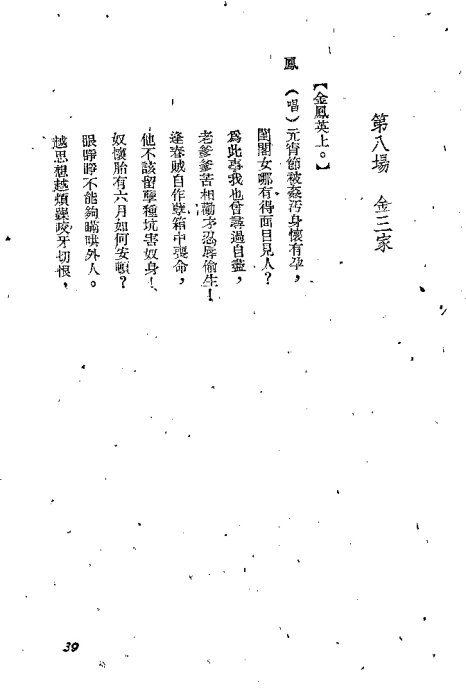 第八場　金三家
【金鳳英上。】
鳳　（唱）元宵節被姦汚身懷有孕，
閨閣女哪有得面目見人？
爲此事我也曾尋過自盡，
老爹爹苦相勸才忍辱偷生！
逢春賊自作孽箱中喪命，
他不該留孽種坑害奴身！
奴懷胎有六月如何安頓？
眼睜睜不能夠瞞哄外人。
越思想越煩躁咬牙切恨，
39